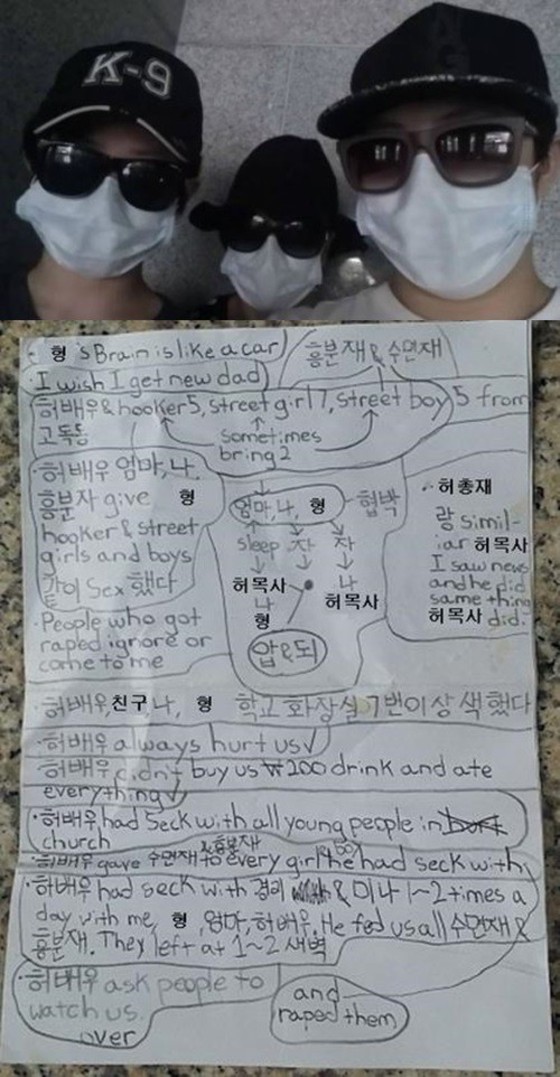 K-9
- 형's Brain is like a car
흥분재 & 수면재
· I wish I get new dad
허배우 & hooker 5, street girl 7, street boy 5 from
고독동
sometimes
bring 2
· 허배우 엄마, 나,
흥분자 give 형
hooker & street
girls and boys
같이 sex 했다
· People who got
raped ignore or
come to me
엄마, 나, 형 협박
sleep 자 자
허목사 나
나 허목사
형
압&되
· 허총재
랑 simil-
iar 허목사
I saw news
and he did
same thing
허목사 did.
· 허배우, 친구, 나, 형 학교 화장실 7번이상 색했다
· 허배우 always hurt us √
· 허배우 didn't buy us ₩200 drink and ate
everything √
· 허배우 had seck with all young people in
church
· 허배우 gave 수면재 & 흥분재 to every girl he had seck with
· 허배우 had seck with & 미나 1~2 times a
day with me, 형, 엄마, 허배우. He fed us all 수면재 &
흥분재. They left at 1~2 새벽
· 허배우 ask people to
watch us.
over
and
raped them